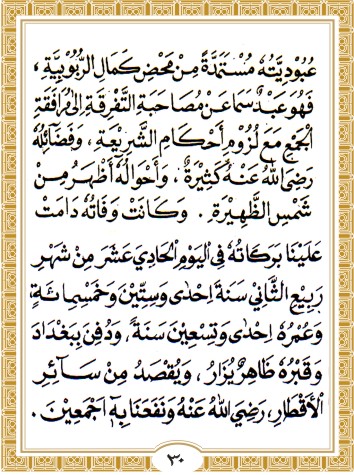 عُبُودِيَّتُهُ مُسْتَمَدَّةً مِنْ مَحْضِ كَمَالِ الرُّبُوْبِيَّةِ ،
فَهُوَ عَبْدٌ سَمَا عَنْ مُصَاحَبَةِ التَّفْرِقَةِ اِلَى مُرَافَقَةِ
الْجَمْعِ مَعَ لُزُوْمِ أَحْكَامِ الشَّرِيْعَةِ ، وَفَضَائِلُهُ
رَضِيَ اللهُ عَنْهُ كَثِيْرَةٌ ، وَأَحْوَالُهُ أَظْهَرُ مِنْ
شَمْسِ الظَّهِيْرَةِ . وَكَانَتْ وَفَاتُهُ دَامَتْ
عَلَيْنَا بَرَكَاتُهُ فِى الْيَوْمِ الْحَادِيْ عَشَرَ مِنْ شَهْرِ
رَبِيْعِ الثَّانِيْ سَنَةَ اِحْدٰى وَسِتِّيْنَ وَخَمْسِمِائَةٍ ،
وَعُمْرُهُ اِحْدٰى وَتِسْعِيْنَ سَنَةً ، وَدُفِنَ بِبَغْدَادَ
وَقَبْرُهُ ظَاهِرٌ يُزَارُ ، وَيُقْصَدُ مِنْ سَآئِرِ
الْأَقْطَارِ ، رَضِيَ اللهُ عَنْهُ وَنَفَعَنَا بِهِ اَجْمَعِيْنَ .
٣٠